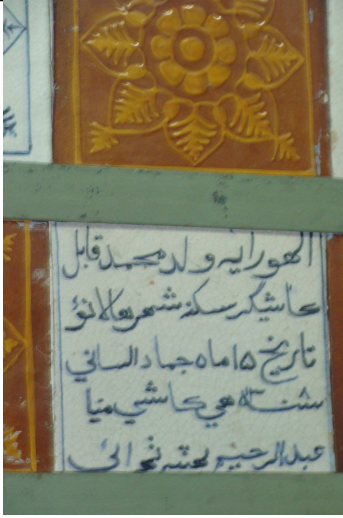 الهورايه ولد محمد قابل
كاشيگر سكنه شهر هالانؤ
تاريخ ۱۵ ماه جماد الساني
سنـه هي كاشي منيا
عبدالرحيم